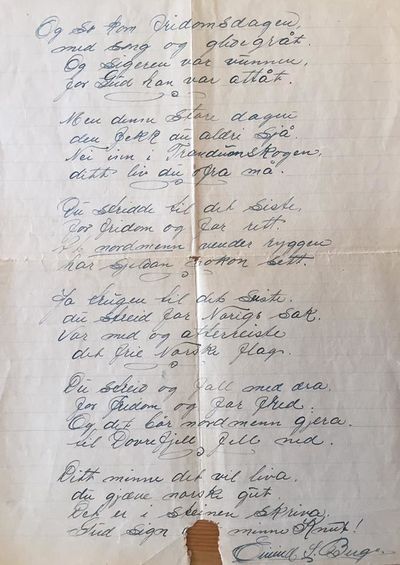 Og so kom Fridomsdagen,
med song og gledegråt.
Og Sigeren var vunnen,
for Gud han var attåt.
Men denne Store dagen
den fekk du aldri sjå.
Nei inn i Trandumskogen,
ditt liv du ofra må.
Du stridde til det siste,
for fridom og for rett.
nordmenn vender ryggen
har sjeldan Kokon sett.
Ja trugen til det siste.
du streid for Norigs sak.
Var med og atterreiste
det frie Norske flagg.
Du streid og fall med æra.
for Fridom og for fred.
Og det bør nordmenn gjera
til Dovrefjell fell ned.
Ditt minne det vil liva,
du gjæve norske gut
Det er i steinen skriva,
Gud Sign minne Knut!